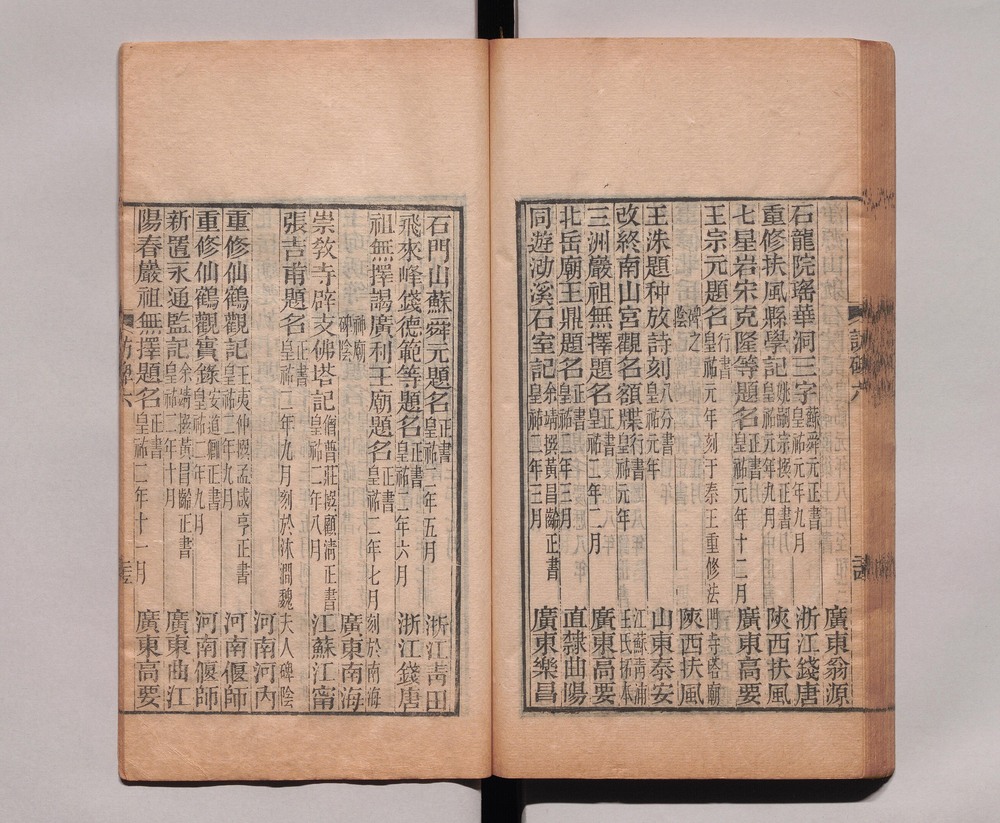 廣東翁源
石龍院瑤華洞三字 蘇舜元正書 皇祐元年九月 浙江錢唐
重修扶風縣學記 姚嗣宗撰正書 皇祐元年九月 陝西扶風
七星岩宋克隆等題名 正書 皇祐元年十二月 廣東高要
王宗元題名 行書 皇祐元年刻于泰王重修法門寺塔廟
碑之陰 陝西扶風
王洙題种放詩刻 八分書 皇祐元年 山東泰安
改終南山宮觀名額牒 行書 皇祐元年 江蘇青浦王氏拓本
三洲巖祖無擇題名 正書 皇祐二年二月 廣東高要
北岳廟王鼎題名 正書 皇祐二年三月 直隸曲陽
同遊泐溪石室記 余靖撰黃昌齡正書 皇祐二年三月 廣東樂昌
訪碑六
石門山蘇舜元題名 正書 皇祐二年五月 浙江青田
飛來峰錢德範等題名 正書 皇祐二年六月 浙江錢唐
祖無擇謁廣利王廟題名 正書 皇祐二年七月刻於南海
神廟碑陰 廣東南海
崇教寺辟支佛塔記 僧普莊撰顧清正書 皇祐二年八月 江蘇江甯
張吉甫題名 正書 皇祐二年九月刻於沐澗魏夫人碑陰
河南河內
重修仙鶴觀記 王夷仲撰孟咸亨正書 皇祐二年九月 河南偃師
重修仙鶴觀實錄 安道卿正書 皇祐二年九月 河南偃師
新置永通監記 余靖撰黃昌齡正書 皇祐二年十月 廣東曲江
陽春巖祖無擇題名 正書 皇祐二年十一月 廣東高要
訪碑六